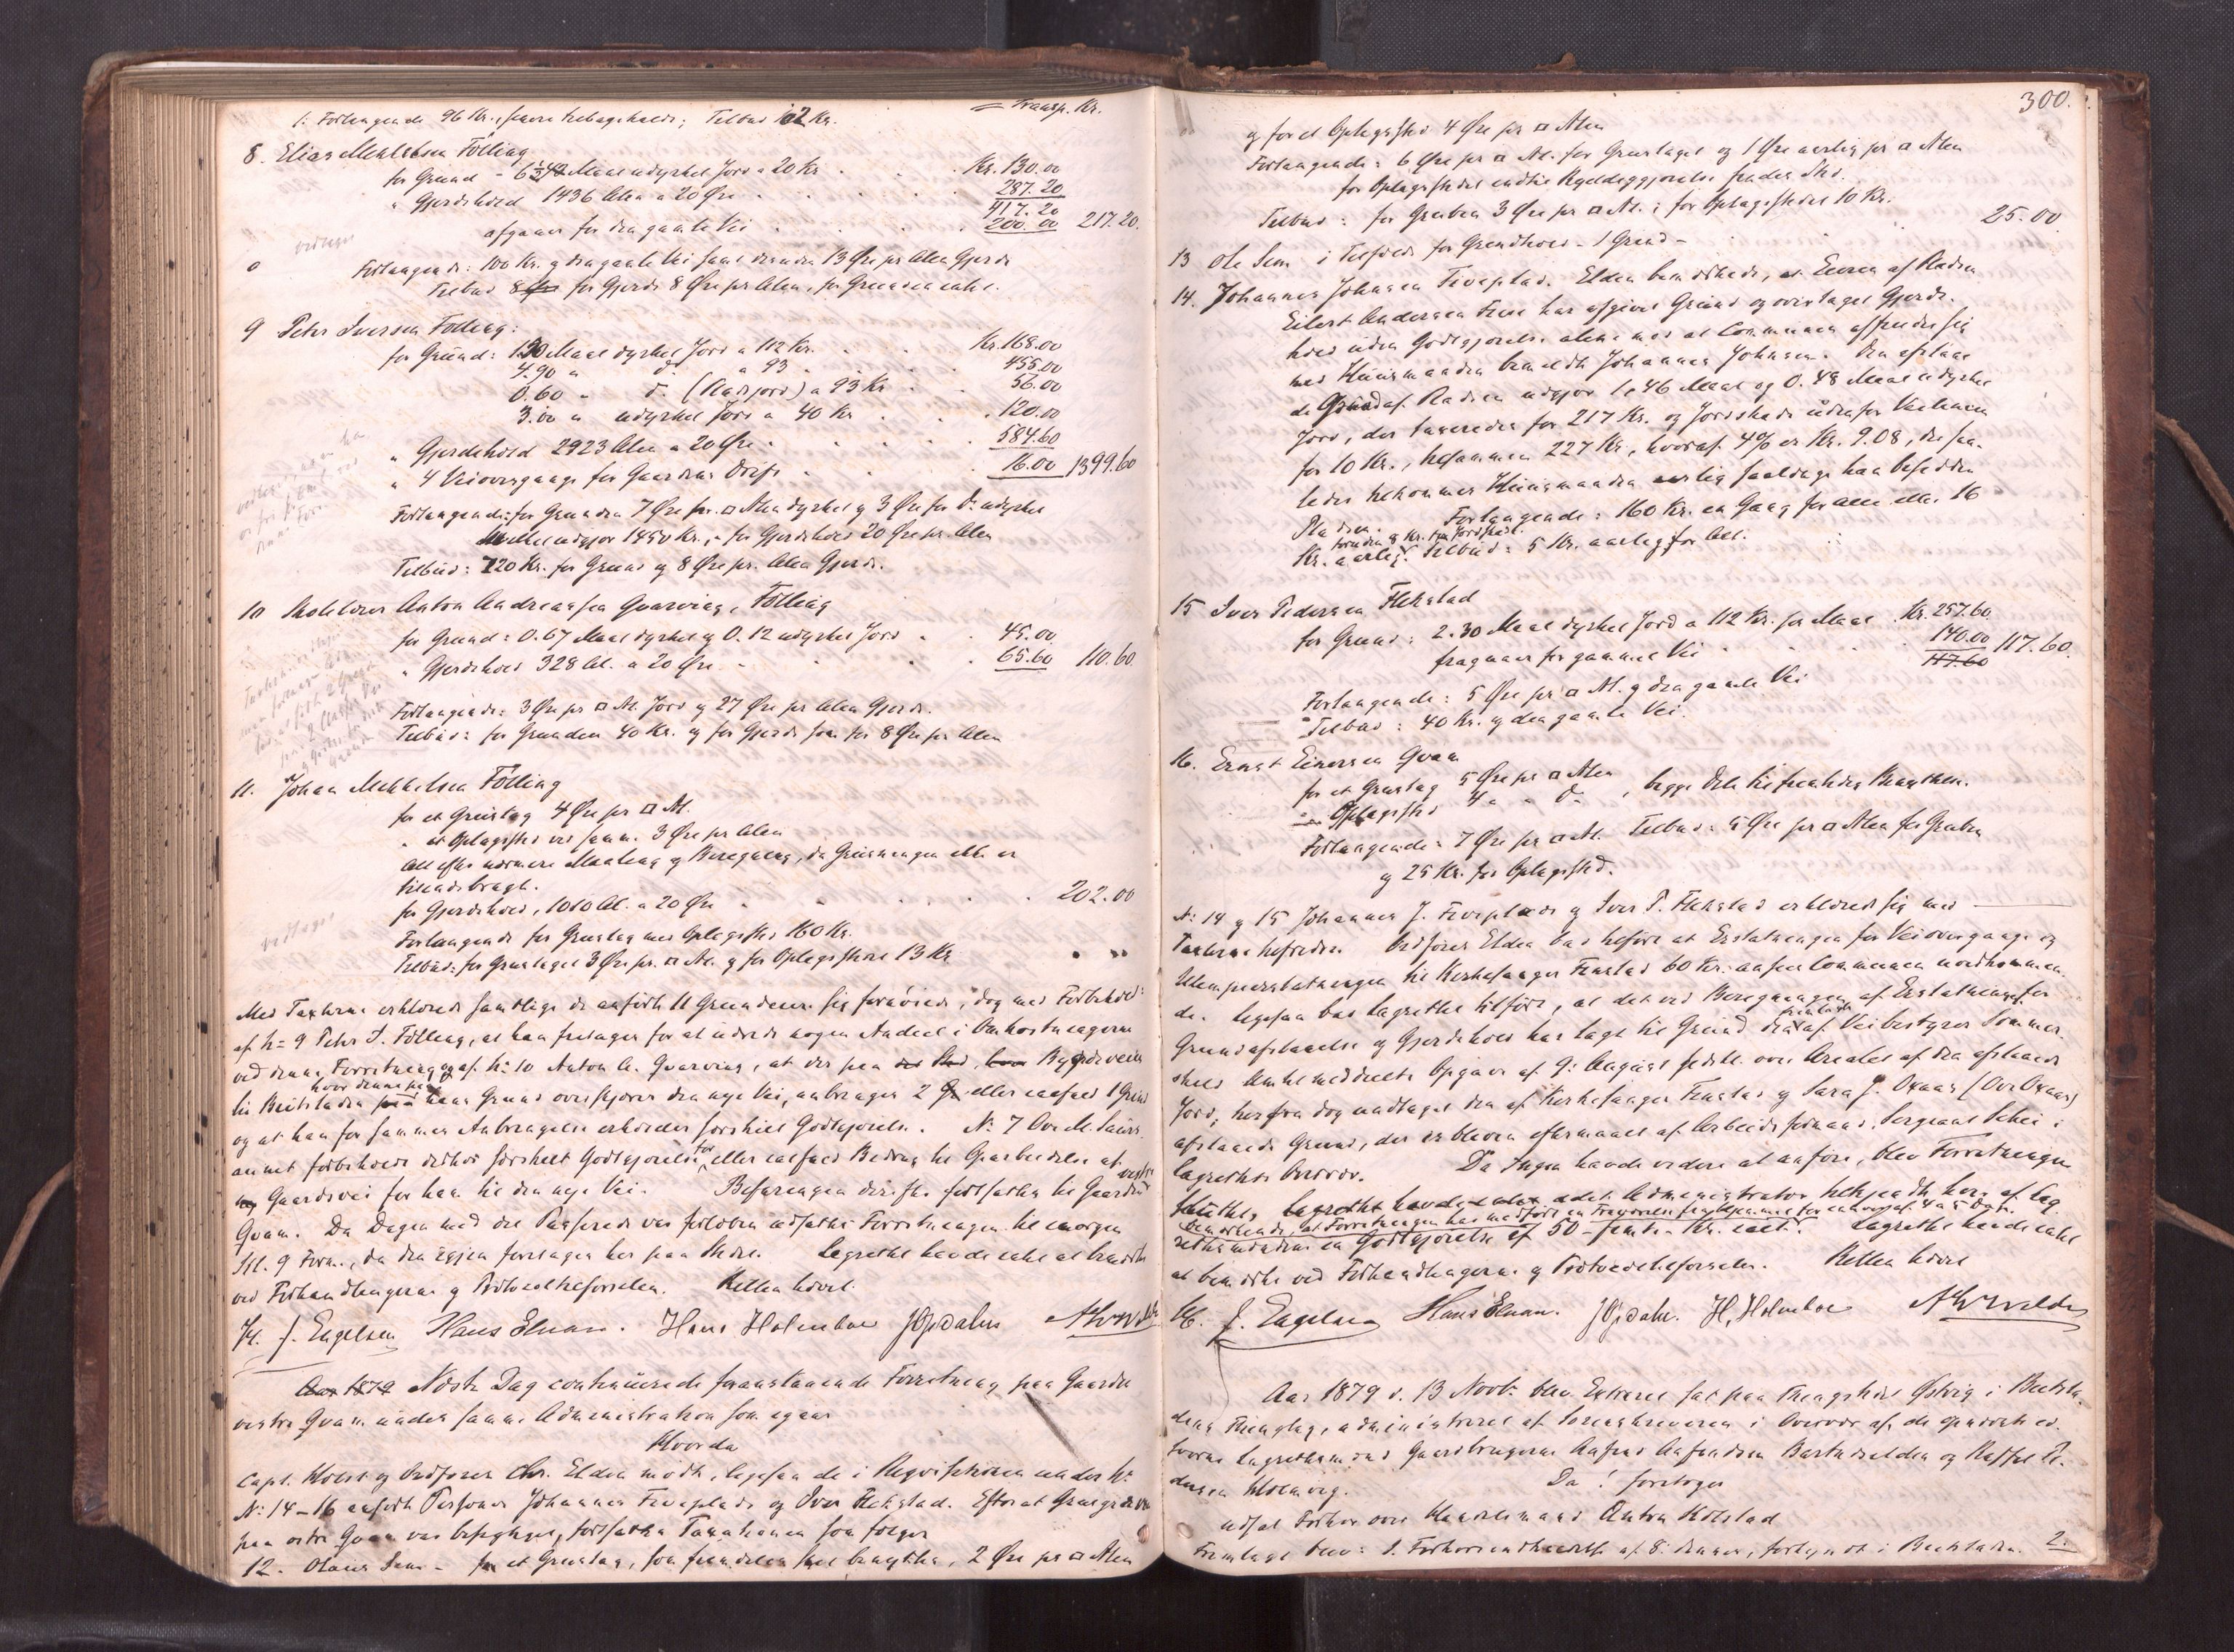 Transp. Kr.
1. Forlangende 96 Kr., Tilbud 12 Kr.
8. Elias Mikkelsen Følling
for Grund - 6 1/2 Maal udyrket Jord a 20 Kr . . Kr. 130.00
" Gjerdehold 1436 Alen a 20 Øre . . . 287.20
417.20
afgaaer for den gamle Vei . . . 200.00 217.20.
vedtaget
Forlangende: 100 Kr. og den gamle Vei samt desuden 13 Øre pr Alen Gjerde
Tilbud for Gjerde 8 Øre pr Alen, for Grunden intet.
9 Peter Iversen Følling:
for Grund: 1.50 Maal dyrket Jord a 112 Kr. . . Kr. 168.00
4.90 " do a 93 . . 455.00
0.60 " do (Ladjord) a 93 Kr . . 56.00
3.00 " udyrket Jord a 40 Kr . . 120.00
" Gjerdehold 2923 Alen a 20 Øre . . . 584.60
" 4 Veiovergange for Gaardens Drift . . 16.00 1399.60
Forlangende: for Grunden 7 Øre pr. □ Alen dyrket og 3 Øre for do udyrket
hvilket udgjør 1450 Kr., - for Gjerdehold 20 Øre pr. Alen
Tilbud: 720 Kr. for Grund og 8 Øre pr. Alen Gjerde.
10 Skolelærer Anton Andreassen Qvarving, Følling
for Grund: 0.67 Maal dyrket og 0.12 udyrket Jord . . 45.00
" Gjerdehold 328 Al. a 20 Øre . . . 65.60 110.60.
Forlangende: 3 Øre pr □ Al. Jord og 27 Øre pr Alen Gjerde.
Tilbud: for Grunden 40 Kr. og for Gjerde som før 8 Øre pr Alen
11. Johan Mikkelsen Følling
for et Grustag 4 Øre pr □ Al.
" et Oplagssted ved samme 3 Øre pr Alen
alt efter nærmere Maaling og Beregning, da Grusningen ikke er
tilendebragt.
for Gjerdehold, 1010 Al. a 20 Øre . . . 202.00
vedtaget
Forlangende for Grustag med Oplagssted 160 Kr.
Tilbud: for Grustaget 3 Øre pr. □ Al. og for Oplagsstedet 13 Kr
Med Taxterne erklærede samtlige de anførte 11 Grundeiere sig fornøiede, dog med Forbehold:
af No 9 Peter I. Følling, at han fritages for at udrede nogen Andeel i Omkostningerne
ved denne Forretning og af No 10 Anton A. Qvarving, at der paa Bygdeveien
hvor denne paa
til Beitstaden hans Grund overskjærer den nye Vei, anbringes 2 eller ialfald 1 Grind
og at han for sammes Anbringelse erholder særskilt Godtgjørelse. No 7 Ove M.
annet forbeholdt sig særskilt Godtgjørelse for, eller ialfald Bidrag til Oparbeidelse af
Gaardsvei for ham til den nye Vei. Befaringen derefter fortsattes til Gaarden vestre
Qvam. Da Dagen med det Passerede var forløben udsattes Forretningen til imorgen
Kl. 9 Form., da den igjen foretages her paa Stedet. Lagrettet havde intet at bemærke
ved Forhandlingerne og Protokoltilførselen. Retten hævet.
J. Engelsen Hans Elnan. Hans Holmboe J Opdahl
Aar 1879 Næste Dag continuerede foranstaaende Forretning paa Gaarden
vestre Qvam under samme Administration som igaar
Hvorda
Capt. Holst og Ordfører Chr. Elden mødte, ligesaa de i Requisitionen under
No 14-16 anførte Personer Johannes Fiveplads og Iver Flekstad. Efterat Grusgraven
paa østre Qvam var besigtiget, fortsattes Taxationen som følger
12. Olaus Sem - for et Grustag, som fremdeles skal benyttes, 2 Øre pr □ Alen
300.
og for et Oplagssted 4 Øre pr □ Alen
Forlangende: 6 Øre pr □ Al. for Grustaget og 1 Øre aarlig pr □ Alen
for Oplagsstedet indtil Ryddeggjørelse finder Sted.
Tilbud: for Gruben 3 Øre pr □ Al.; for Oplagsstedet 10 Kr.
13 Ole Sem i Tilfælde for Grindhold - 1 Grind - . . . 25.00
14. Johannes Johnsen Fiveplads. Elden bemærkede, at Eieren af Pladsen
Eilert Andersen Five har afgivet Grund og overtaget Gjerde-
hold uden Godtgjørelse alene mod at Communen affinder sig
med Huusmanden bemeldte Johannes Johnsen. Den afstaae-
de Grund af Pladsen udgjør 1.46 Maal og 0.48 Maal udyrket
Jord, der taxeredes for 217 Kr. og Jordskade udenfor Veilinien
for 10 Kr., tilsammen 227 Kr., hvoraf 4% er Kr. 9.08, der saa-
ledes tilkommer Huusmanden aarlig saalænge han besidder
Pladsen. Forlangende: 160 Kr. en Gang for alle eller 16
foruden 8 Kr. for Jordskade.
Kr. aarlig. Tilbud: 5 Kr. aarlig for Alt.
15 Iver Pedersen Flekstad
for Grund: 2.30 Maal dyrket Jord a 112 Kr. pr Maal . Kr. 257.60
fragaaer for gammel Vei . . . 140.00 117.60.
117.60
Forlangende: 5 Øre pr □ Al. og den gamle Vei
Tilbud: 40 Kr. og den gamle Vei.
16. Ernst Einersen Qvam
for et Grustag 5 Øre pr □ Alen
" Oplagssted 4 " " do , begge Dele til fremtidig Benyttelse.
Forlangende: 7 Øre pr □ Al. Tilbud: 5 Øre pr □ Alen for Gruben
og 25 Kr. for Oplagssted.
No 14 og 15 Johannes J. Fiveplads og Iver P. Flekstad erklærede sig med
Taxterne tilfredse. Ordfører Elden bad tilført at Erstatningen for Veiovergange og
Ulempeerstatningen til Kirkesanger Finstad 60 Kr. ansees Communen uvedkommen-
de. Ligesaa bad Lagrettet tilført, at det ved Beregningen af Erstatning for
Grundafstaaelse og Gjerdehold har lagt til Grund den fremlagte af Veibestyrer Sommer-
skield Opgave af 9: August sidstl. over Arealet af den afstaaede
Jord, herfra dog undtaget den af Kirkesanger Finstad og Sara J. Oxaas (Ovr Oxaas)
afstaaede Grund, der er bleven eftermaalt af Arbeidsformand, Sergeant Schei i
Lagrettets Overvær. Da Ingen havde videre at anføre, blev Forretningen
sluttet, Lagrettet af Administrator tilkjendte hver af Lag-
bemærkende, at Forretningen har medført en Fraværelse fra Hjemmet for enhver af 4 a 5 Dage.
rettesmændene en Godtgjørelse af 50 - femti - Kr. ialt. Lagrettet havde intet
at bemærke ved Forhandlingerne og Protocoltilførselen. Retten hævet
J. Engelsen Hans Elnan. J Opdahl. H. Holmboe
Aar 1879 d. 13 Novbr. blev Extraret sat paa Thingstedet Østvig i Beitsta-
dens Thinglag, administreret af Sorenskriveren i Overvær af de opnævnte ed-
svorne Lagrettesmænd Gaardbrugerne Anfind Anfindsen Bartnæselden og Kasper Pe-
dersen Holmvig. Da! foretoges
udsat Forhør over Handelsmand Anton Kolstad
Fremlagt blev: 1. af 8: dennes, forkyndt i Beitstaden. 2.